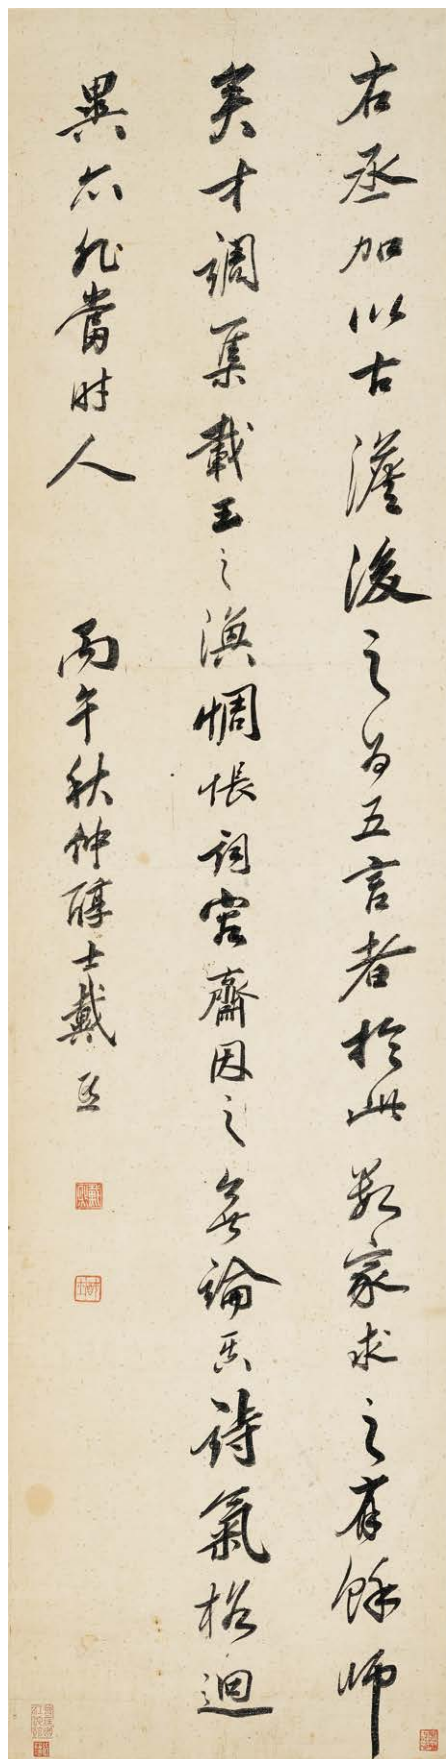 右丞加以古澹後之為五言者於此數家求之有餘師
矣才調集載王之渙惆悵詞容齋因之無論其詩氣格迥
異亦非當時人
丙午秋仲醇士戴熙